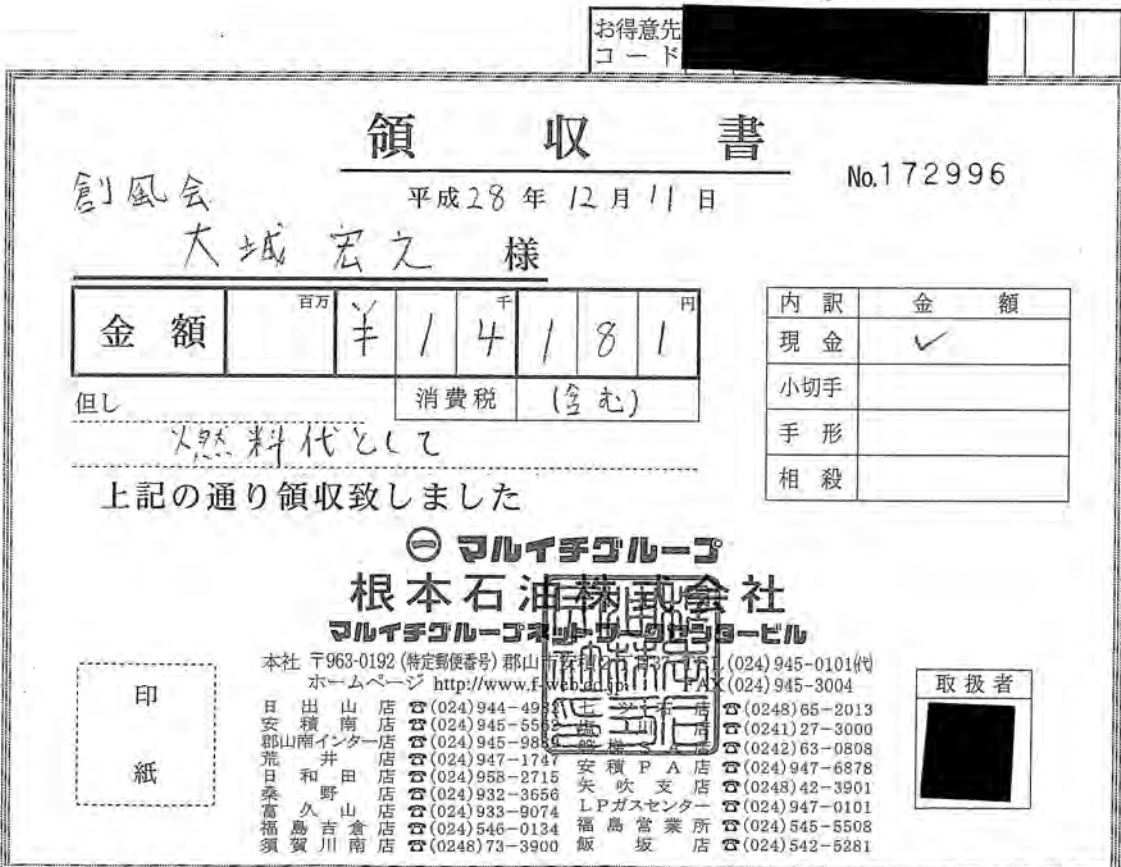 お得意先
コード
領収書
No.172996
平成28年12月11日
創風会
大城宏之 様
金額 百万 千 円
¥14181
消費税 (含む)
但し
燃料代として
上記の通り領収致しました
内訳 金額
現金 ✓
小切手
手形
相殺
㊀ マルイチグループ
根本石油株式会社
マルイチグループネットワークセンタービル
本社 〒963-0192 (特定郵便番号) 郡山市安積 TEL(024)945-0101㈹
ホームページ http://www.f-web.co.jp FAX(024)945-3004
日出山店 ☎(024)944-49
安積南店 ☎(024)945-55
郡山南インター店 ☎(024)945-98
荒井店 ☎(024)947-1747
日和田店 ☎(024)958-2715
桑野店 ☎(024)932-3656
富久山店 ☎(024)933-9074
福島吉倉店 ☎(024)546-0134
須賀川南店 ☎(0248)73-3900
店 ☎(0248)65-2013
店 ☎(0241)27-3000
店 ☎(0242)63-0808
安積PA店 ☎(024)947-6878
矢吹支店 ☎(0248)42-3901
LPガスセンター ☎(024)947-0101
福島営業所 ☎(024)545-5508
飯坂店 ☎(024)542-5281
印紙
取扱者